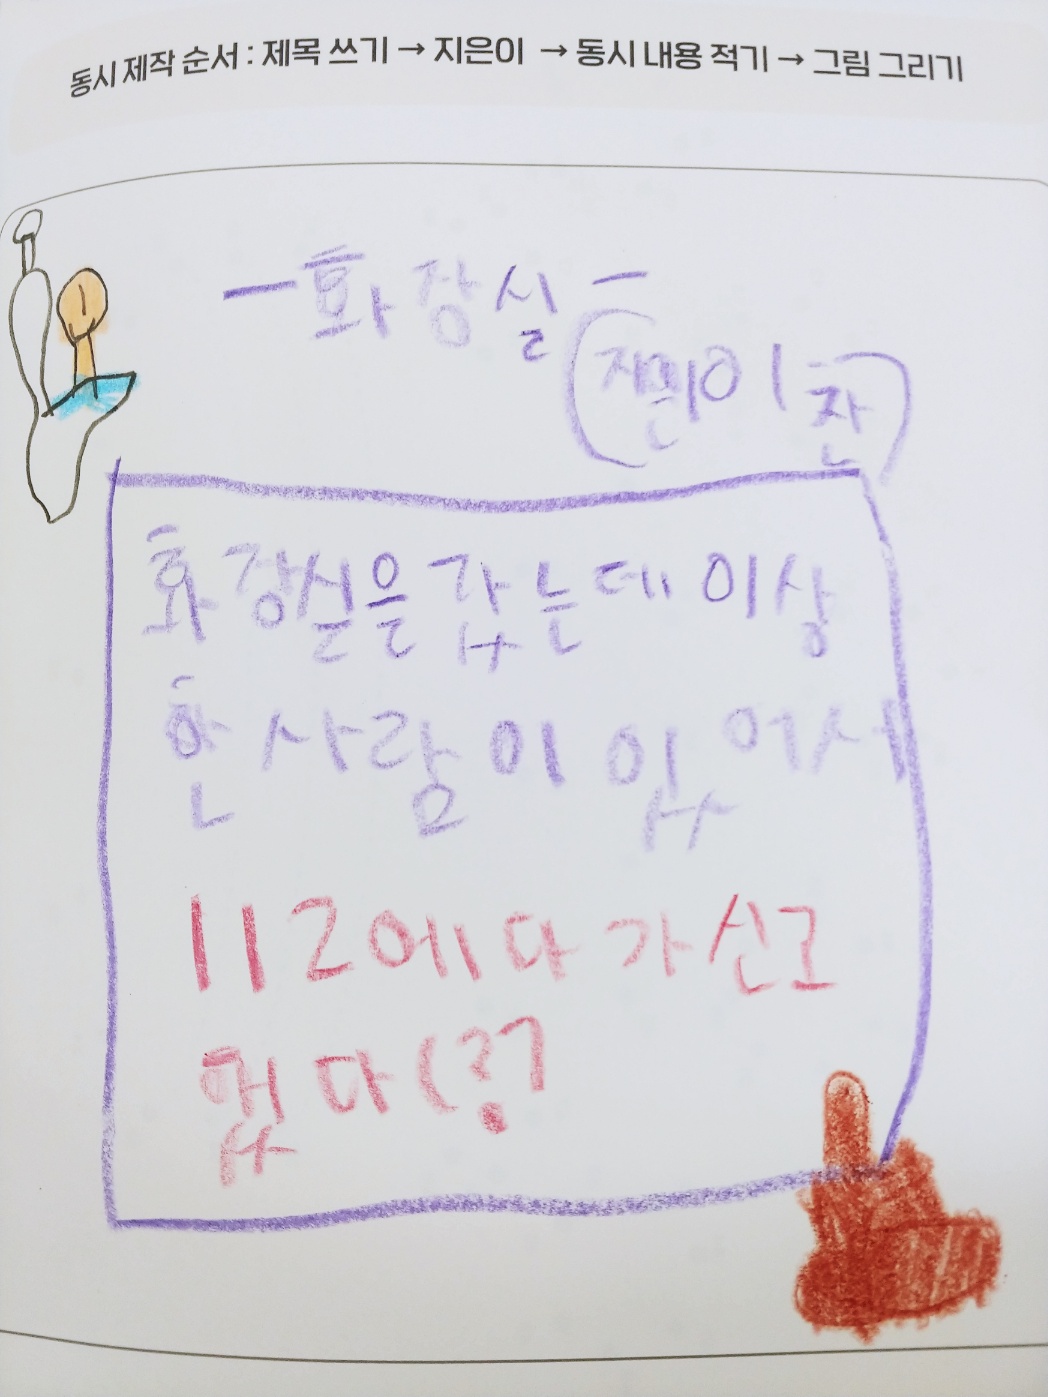 동시 제작 순서 : 제목 쓰기 → 지은이 → 동시 내용 적기 → 그림 그리기
-화장실-
화장실을 갔는데 이상
한 사람이 있어서
112에다가 신고
했다(?)